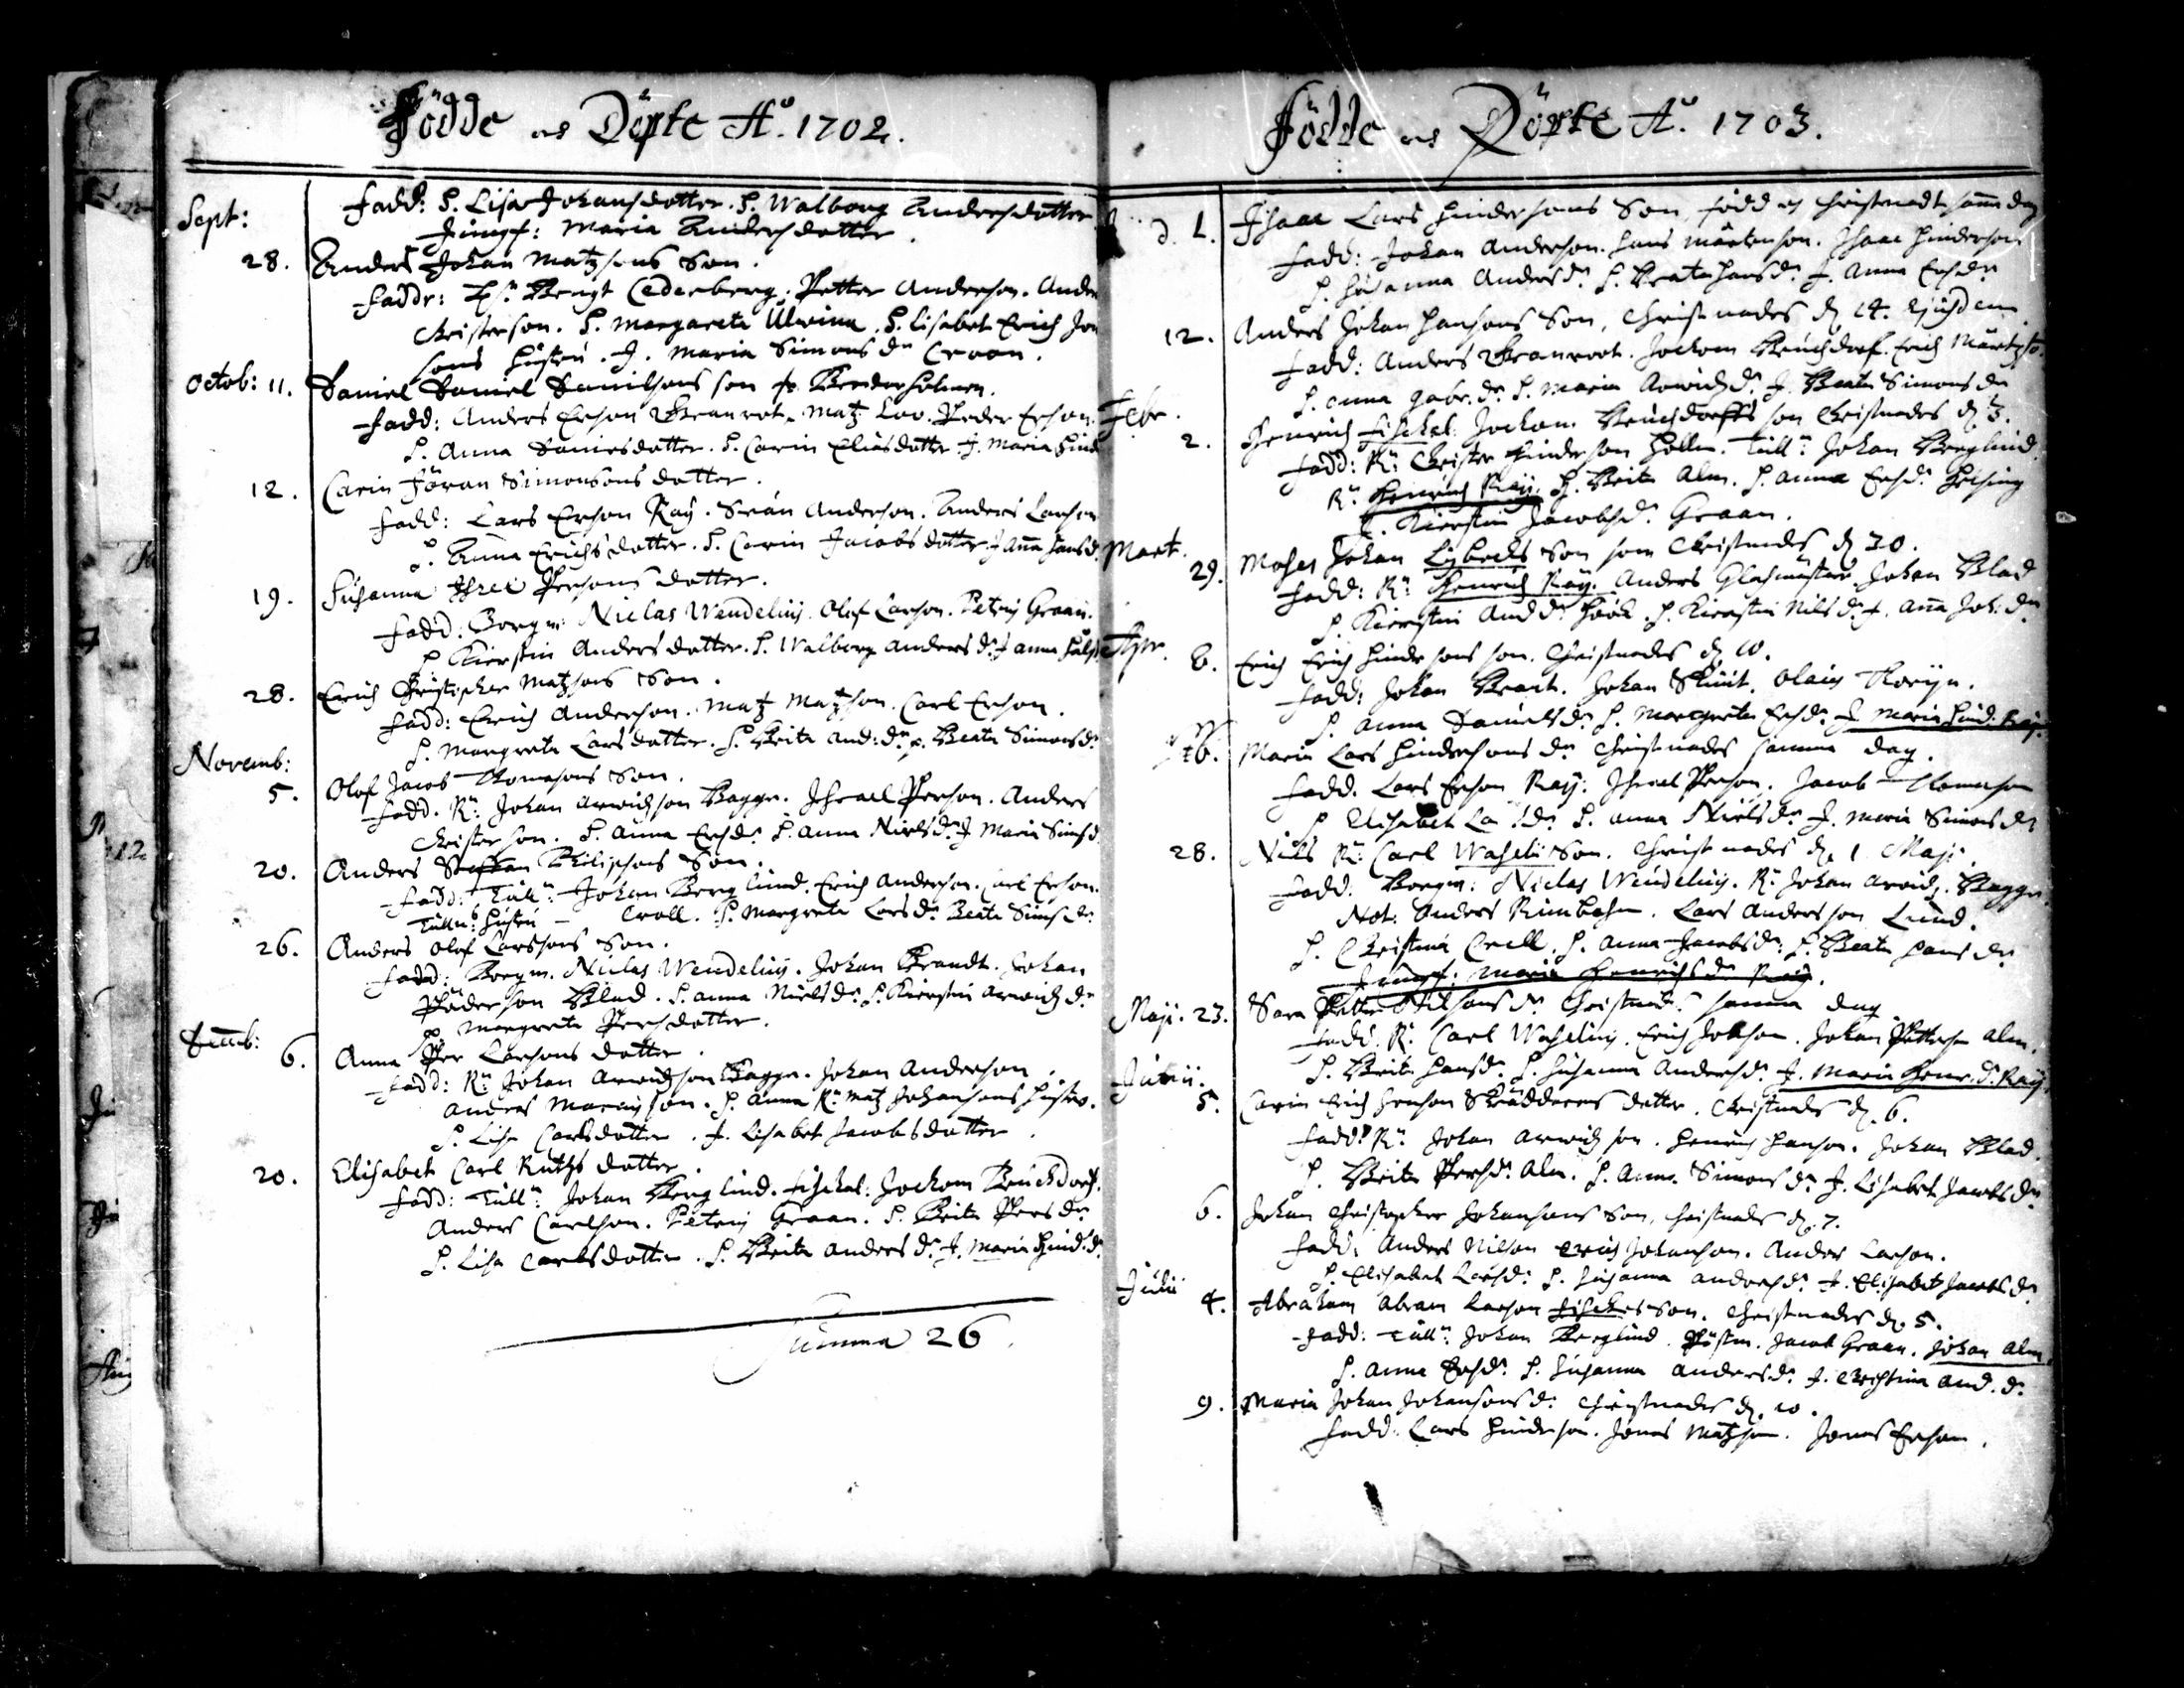 Födde och Döpte A:o 1702.
Sept:
Fadd: H. Lisa Johansdotter. H. Walborg Andersdotter
Jungf: Maria Andersdotter.
28. Anders Johan Matzsons Son.
Faddr: Bengt Cederberg, Petter Anderson. Ander
Christerson. H. Margareta Ulvina. H. Lisabet Erich Jon
sons hustru. J. Maria Simons dr Croon.
Octob: 11. Daniel Daniel Danielsons son fr. Brederholmen.
Fadd: Anders Erson Granrot. Matz Loo. Peder Erson.
H. Anna Danielsdotter. H. Carin Eliasdotter. J. Maria Hind
12. Carin Jöran Simonsons dotter.
Fadd: Lars Erson Ray. Swän Anderson. Anders Larson
H. Anna Erichsdotter. H. Carin Jacobsdotter J Anna Hansd
19. Susanna Israel Persons dotter.
Fadd: Borgm: Niclas Wendelius. Olof Larson. Petrus Graan.
H Kierstin Andersdotter. H. Walborg Anders dr J anna
28. Erich Christopher Matzsons Son.
Fadd: Erich Anderson. Matz Matzson. Carl Erson.
H. Margreta Larsdotter. H. Brita And: dr Beata Simonsdr
Novemb:
5. Olof Jacob Thomasons Son.
Fadd. R: Johan Arwidsson Bagge. Israel Person. Anders
Christerson. H. Anna Ersdr H. Anna Nielsdr J Maria Simsd
20. Anders Staffan Philipsons Son.
Fadd: Tull: Johan Berglind. Erich Anderson. Carl Erson.
Tulln: hustru – Croll. H. Margreta Larsdr Beata Sims dr
26. Anders Olof Larssons Son.
Fadd: Borgm. Niclas Wendelius. Johan Brandt. Johan
Päderson Blad. H. Anna Niels dr H. Kierstin Arwids dr
Margreta Persdotter.
Decemb:
6. Anna Per Larsons dotter.
Fadd: R: Johan Arwidsson Bagge. Johan Anderson.
Anders Mårtenson. H. Anna R: Matz Johansons hustru.
H. Lisa Carlsdotter. J. Lisabet Jacobsdotter.
20. Elisabet Carl Ruths dotter.
Fadd: Tull: Johan Berglind. Fiskal: Jochom Bruchdorf.
Anders Carlson. Petrus Graan. H. Brita Pers dr
H. Lisa Carlsdotter. H. Brita Anders dr J. Maria Hind. dr
Summa 26.
Födde och Döpte A:o 1703.
d. 1. Isaac Lars Hindersons Son, född och Christnadt samma dag
Fadd: Johan Anderson. Hans Mårtenson. Isaac Hinderson
H. Susanna Andersdr. H. Beata Hansdr. J. Anna Ersdr.
12. Anders Johan Hansons Son, Christnades d. 14. Ejusdem
Fadd: Anders Granroot. Jochom Bruchdorf. Erich Mårtzso
H. Anna Gabr. dr. H. Maria Arwidz dr. J. Beata Simons dr
Febr.
2. Henrich Fischal. Jochom Bruchdorffs son Christnades d. 3.
Fadd: R: Christer Hinderson Holm. Tull: Johan Berglind.
R: Henrich Ray. H. Brita Alm. H. Anna Ersd: Helsing
J. Kierstin Jacobsd: Graan.
Mart.
29. Moses Johan Lybecks Son som Christnades d. 30.
Fadd: R: Henrich Ray. Anders Glasmästare Johan Blad
H. Kierstin And dr Höök. H. Kierstin Nils dr J. Anna Joh: dr
Apr.
6. Erich Erich Hindersons son. Christnades d. 10.
Fadd: Johan Bract. Johan Skutt. Olaus Thorijn.
H. Anna Daniels dr. H. Margreta Ersdr J Maria Hind. Ray.
16. Maria Lars Hindersons dr Christnades samma dag.
Fadd. Lars Erson Ray: Israel Person. Jacob Thomason
H Elisabet La dr H. Anna Niels dr J. Maria Simons dr
28. Nils R: Carl Waseli Son. Christnades d. 1 Maji.
Fadd. Borgm: Niclas Wendelius. R: Johan Arvids. Bagge.
Not: Anders Rimbohm. Lars Andersson Lund.
H. Christina Croll. H. Anna Jacobsdr: H. Beata Hans dr
Jungf: Maria Henrichs dr Ray.
Maji. 23. Sara Petter Nilsons dr Christnades samma dag
Fadd. R: Carl Waselius. Erich Jobson. Johan Petterson Alm.
H. Brita Hansdr. H. Susanna Andersdr. J. Maria Henr. dr Ray.
Junii.
5. Carin Erich Hanson Skräddares dotter. Christnades d. 6.
Fadd: R: Johan Arwidson. Henrich Hanson. Johan Blad.
H. Brita Persdr Alm. H. Anna Simons dr J. Lisabet Jacobs dr
6. Johan Christopher Johansons Son, Christnades d. 7.
Fadd: Anders Nilson Erich Johanson. Anders Larson.
H. Elisabet Larsdr. H. Susanna Andersdr. J. Elisabet Jacobs dr
Julii
4. Abraham Abram Larson Fischers Son. Christnades d. 5.
Fadd: Tull: Johan Berglind. Postm. Jacob Graan. Johan Alm.
H. Anna Ersdr. H. Susanna Andersdr. J. Christina And. dr
9. Maria Johan Johansons dr Christnades d. 10.
Fadd: Lars Hinderson. Jonas Matzson. Jonas Erson.